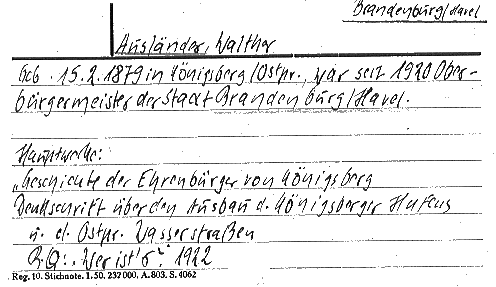 Brandenburg/Havel
Ausländer, Walther
Geb. 15.2.1879 in Königsberg/Ostpr., war seit 1920 Ober-
bürgermeister der Stadt Brandenburg/Havel.
Hauptwerke:
„Geschichte der Ehrenbürger von Königsberg
Denkschrift über den Ausbau d. Königsberger Hafens
u. d. Ostpr. Wasserstraßen
Wer ist's" 1922
Reg. 10. Stichnote. 1. 50. 237 000. A. 803. S. 4062